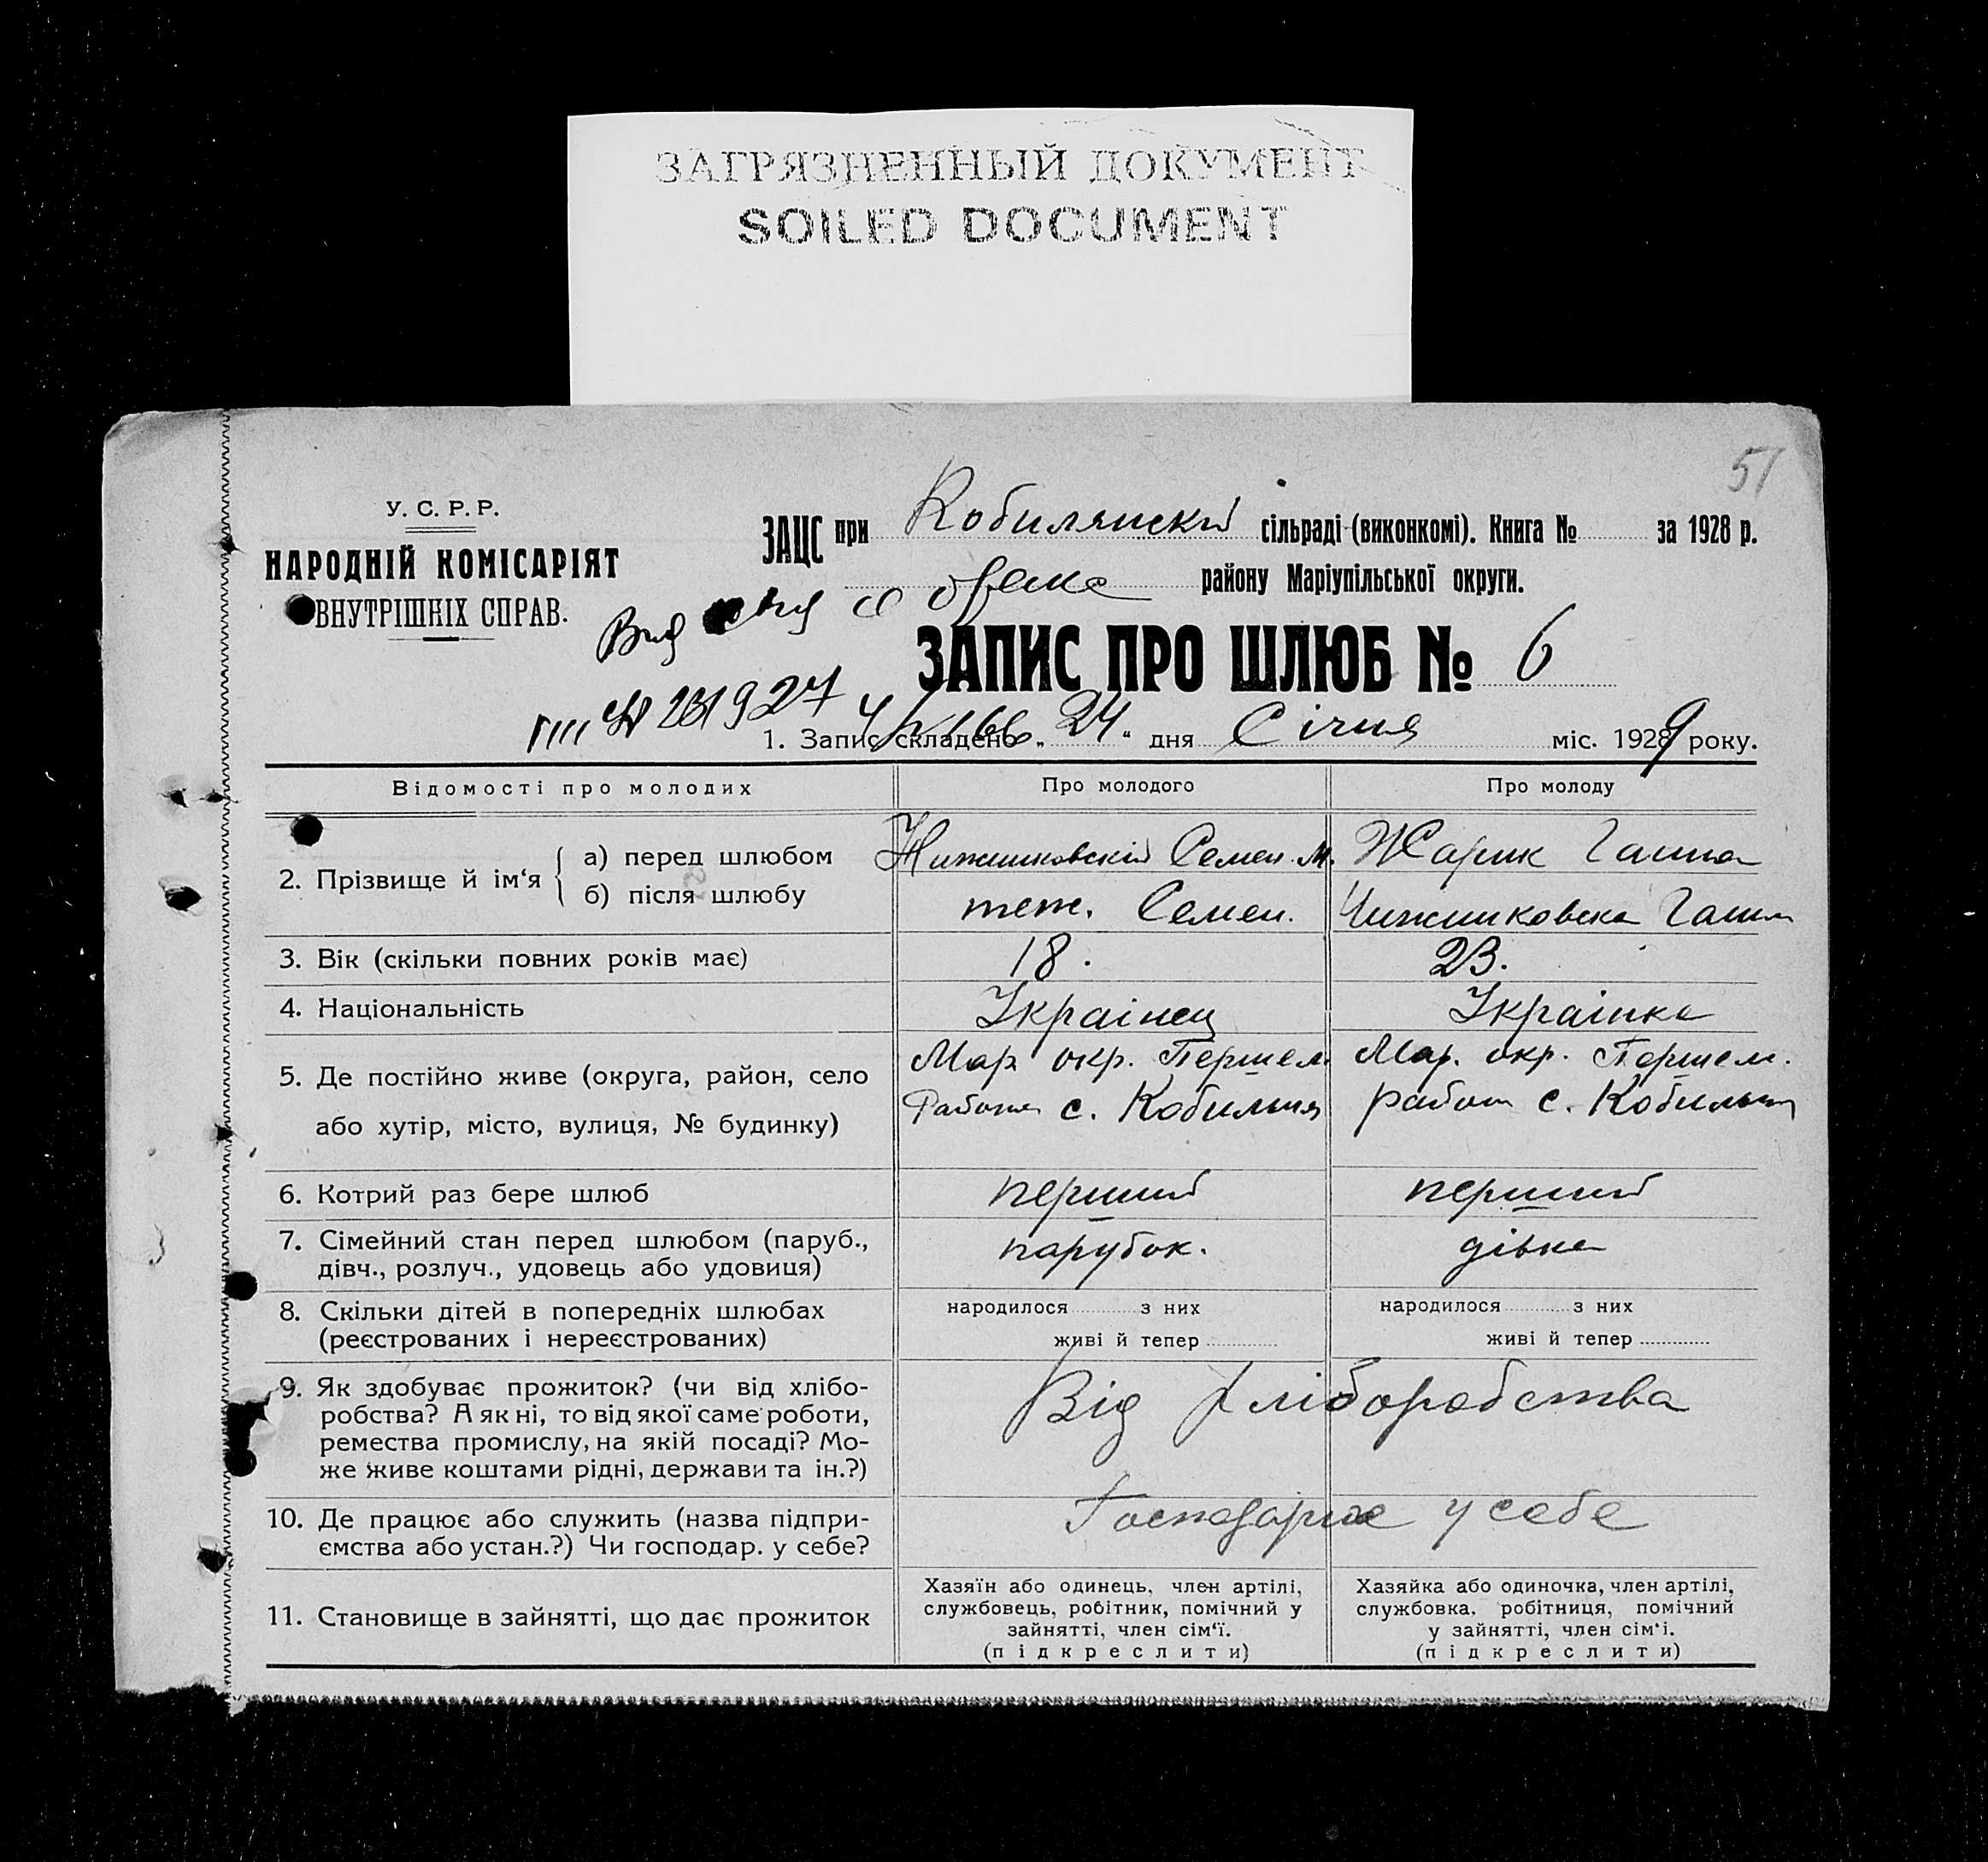 ЗАГРЯЗНЕННЫЙ ДОКУМЕНТ
SOILED DOCUMENT
51
У. С. Р. Р.
НАРОДНІЙ КОМІСАРІЯТ
ВНУТРІШНІХ СПРАВ.
ЗАЦС при Кобилянскій сільраді (виконкомі). Книга № за 1928 р.
району Маріупільської округи.
ЗАПИС ПРО ШЛЮБ № 6
1. Запис складено „24“ дня Січня міс. 1929 року.
Відомості про молодих Про молодого Про молоду
2. Прізвище й ім‘я
а) перед шлюбом Семен М. Жарик Ганна
б) після шлюбу теж. Семен. Чижиковска Ганна
3. Вік (скільки повних років має) 18. 23.
4. Національність Українец Українка
5. Де постійно живе (округа, район, село Мар окр. Першем Мар. окр. Першем.
або хутір, місто, вулиця, № будинку) с. Кобильня с. Кобильня
6. Котрий раз бере шлюб перший перший
7. Сімейний стан перед шлюбом (паруб., парубок. дівка
дівч., розлуч., удовець або удовиця)
8. Скільки дітей в попередніх шлюбах народилося з них народилося з них
(реєстрованих і нереєстрованих) живі й тепер живі й тепер
9. Як здобуває прожиток? (чи від хлібо- Від хліборобства
робства? А як ні, то від якої саме роботи,
ремества промислу, на якій посаді? Мо-
же живе коштами рідні, держави та ін.?)
10. Де працює або служить (назва підпри- у себе
ємства або устан.?) Чи господар. у себе?
11. Становище в зайнятті, що дає прожиток
Хазяїн або одинець, член артілі, Хазяйка або одиночка, член артілі,
службовець, робітник, помічний у службовка, робітниця, помічний
зайнятті, член сім‘ї. у зайнятті, член сім‘і.
(підкреслити) (підкреслити)